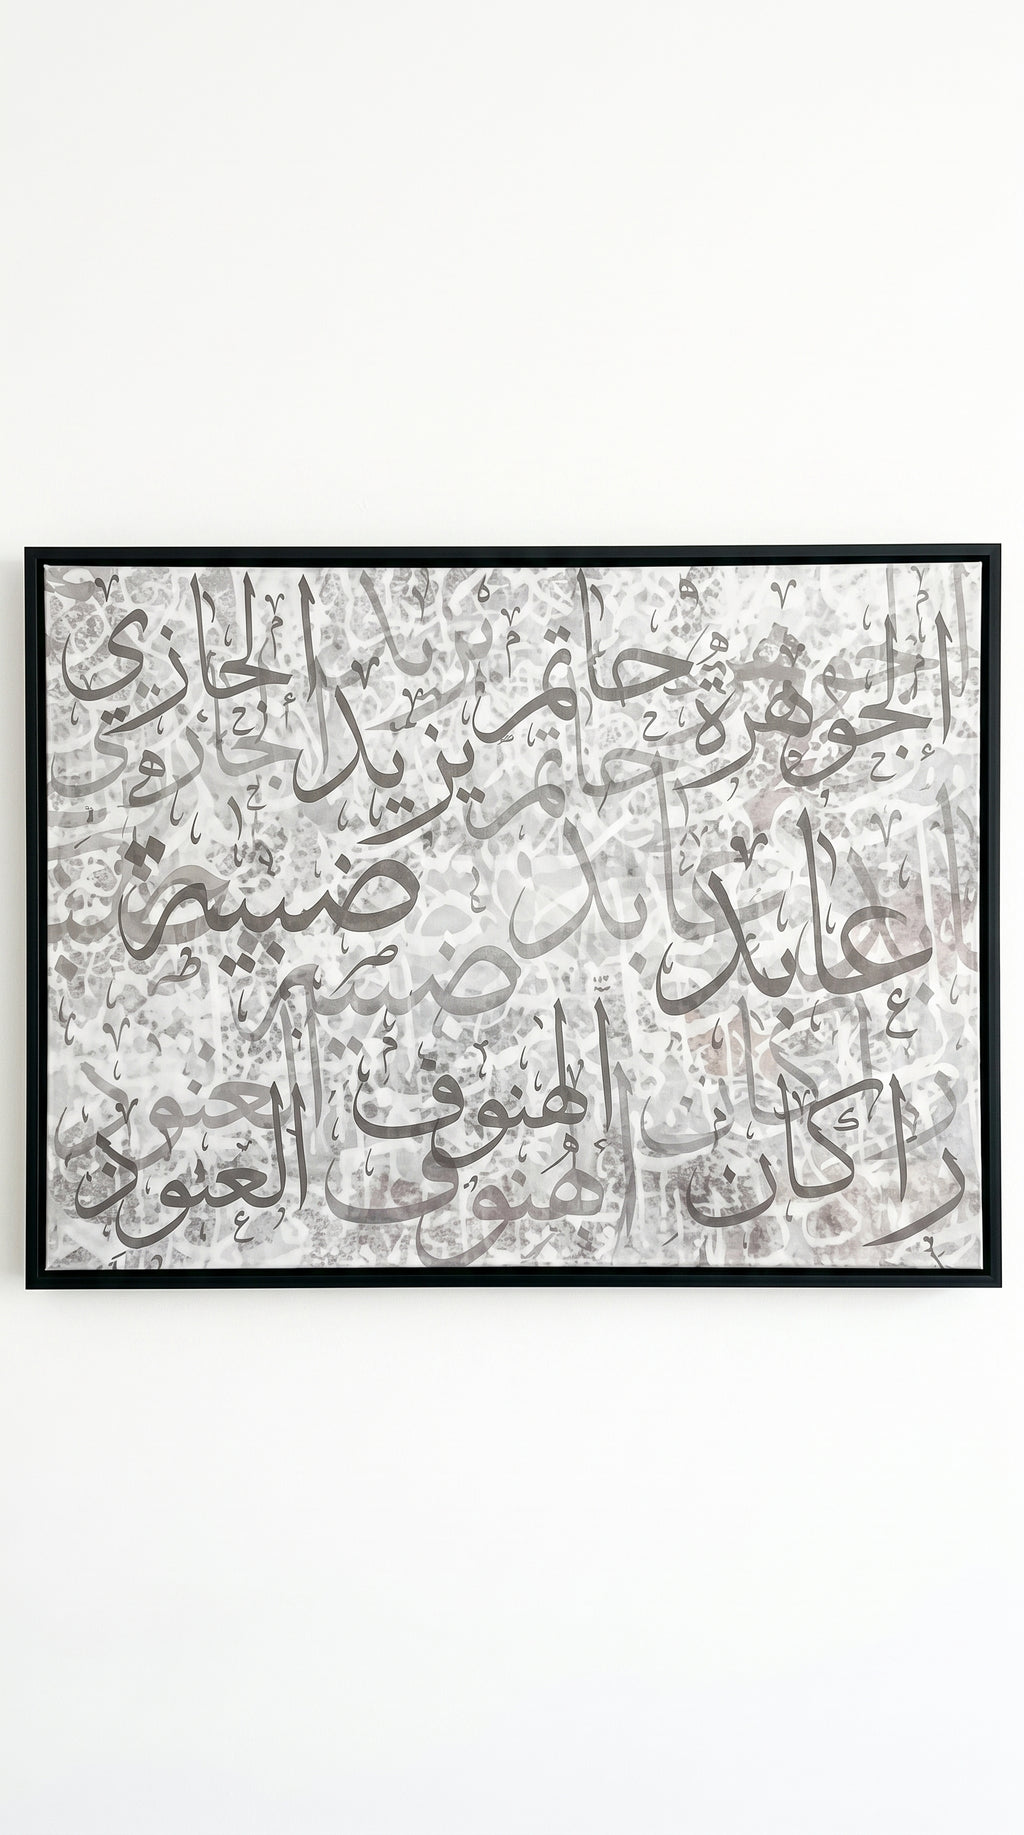 الجوهرة حاتم يزيد الجازي
عابد ضبيه
راكان الهنوف العنود